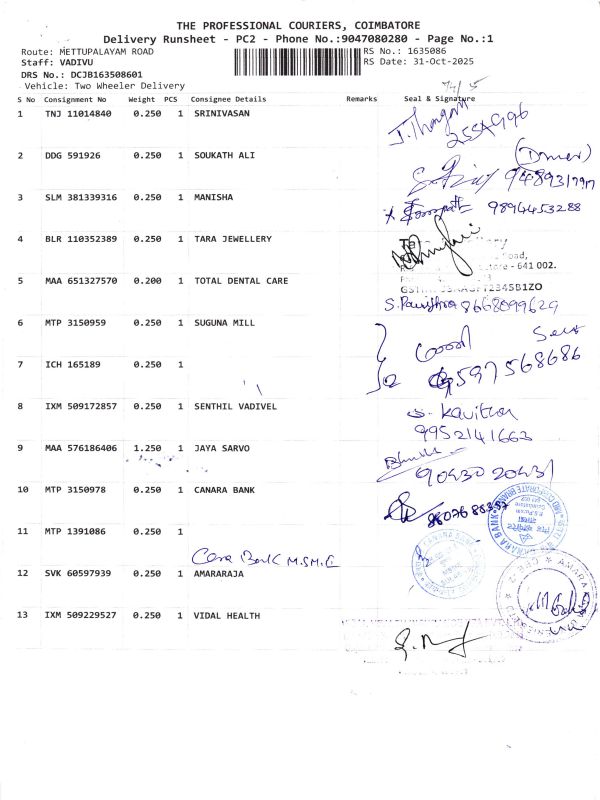 THE PROFESSIONAL COURIERS, COIMBATORE
Delivery Runsheet - PC2 - Phone No.:9047080280 - Page No.:1
Route: METTUPALAYAM ROAD RS No.: 1635086
Staff: VADIVU RS Date: 31-Oct-2025
DRS No.: DCJB163508601
Vehicle: Two Wheeler Delivery
S No Consignment No Weight PCS Consignee Details Remarks Seal & Signature
1 TNJ 11014840 0.250 1 SRINIVASAN
2 DDG 591926 0.250 1 SOUKATH ALI
3 SLM 381339316 0.250 1 MANISHA 9894453288
4 BLR 110352389 0.250 1 TARA JEWELLERY
641 002.
5 MAA 651327570 0.200 1 TOTAL DENTAL CARE
S. Pavithra 8668099629
6 MTP 3150959 0.250 1 SUGUNA MILL
7 ICH 165189 0.250 1 597568686
8 IXM 509172857 0.250 1 SENTHIL VADIVEL S. Kavitha
9952141663
9 MAA 576186406 1.250 1 JAYA SARVO
90430 20431
10 MTP 3150978 0.250 1 CANARA BANK
11 MTP 1391086 0.250 1
Bank M.S.M.E
12 SVK 60597939 0.250 1 AMARARAJA
13 IXM 509229527 0.250 1 VIDAL HEALTH